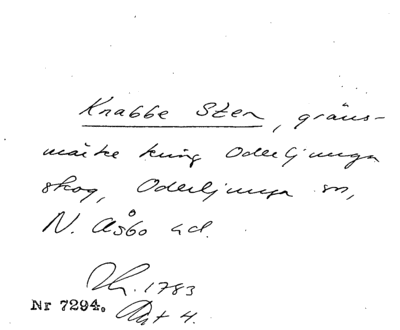 Knabbe Sten, gräns-
märke kring Oderljunga
skog, Oderljunga sn,
N. Åsbo hd.
1783
Nr 7294. Akt 4.